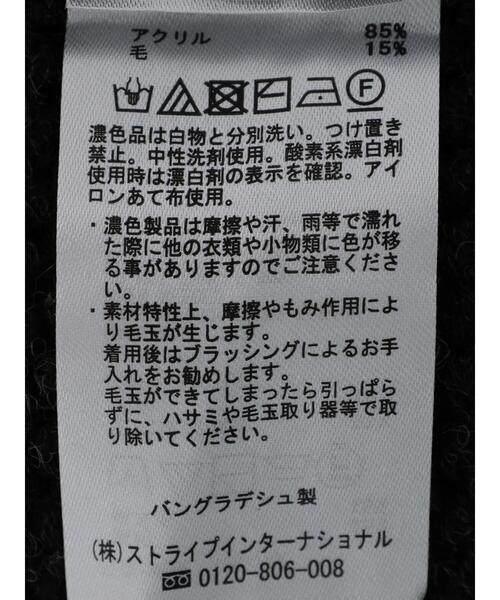 アクリル 85%
毛 15%
濃色品は白物と分別洗い。つけ置き
禁止。中性洗剤使用。酸素系漂白剤
使用時は漂白剤の表示を確認。アイ
ロンあて布使用。
・濃色製品は摩擦や汗、雨等で濡れ
た際に他の衣類や小物類に色が移
る事がありますのでご注意くださ
い。
・素材特性上、摩擦やもみ作用によ
り毛玉が生じます。
着用後はブラッシングによるお手
入れをお勧めします。
毛玉ができてしまったら引っぱら
ずに、ハサミや毛玉取り器等で取
り除いてください。
バングラデシュ製
(株)ストライプインターナショナル
0120-806-008